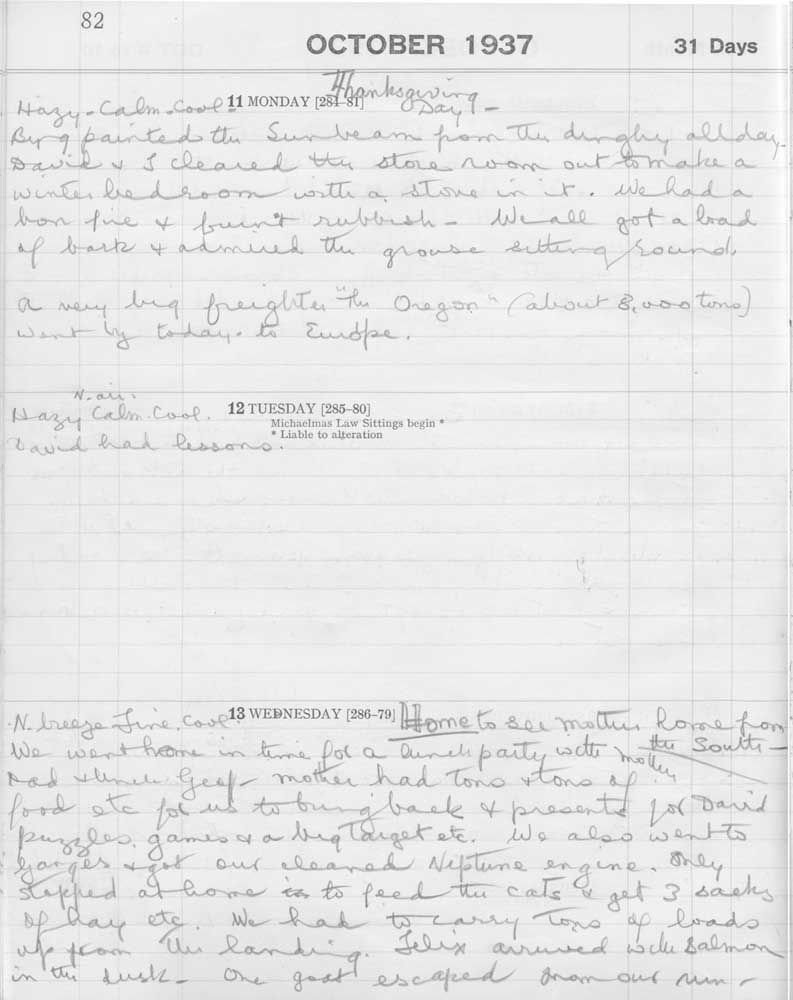 82
OCTOBER 1937 31 Days
Thanksgiving
Hazy - Calm - Cool - 11 MONDAY [284-81] Day -
Byng painted the Sunbeam from the dinghy all day -
David & I cleared the store room out to make a
winter bedroom with a stove in it. We had a
bon fire & burnt rubbish - We all got a load
of bark & admired the grouse sitting round.
A very big freighter "The Oregon" (about 8,000 tons)
went by today - to Europe.
N. air.
Hazy Calm. Cool. 12 TUESDAY [285-80]
Michaelmas Law Sittings begin *
* Liable to alteration
David had lessons.
N. breeze Fine. Cool 13 WEDNESDAY [286-79] Home to see mother home from
We went home in time for a lunch party with mother the South -
Dad & Uncle Geof - mother had tons & tons of
food etc for us to bring back & presents for David
puzzles, games & a big Target etc. We also went to
Ganges & got our cleaned Neptune engine. Only
stopped at home to feed the cats & get 3 sacks
of hay etc. We had to carry tons of loads
up from the landing. Felix arrived with Salmon
in the dusk - One goat escaped from our run -